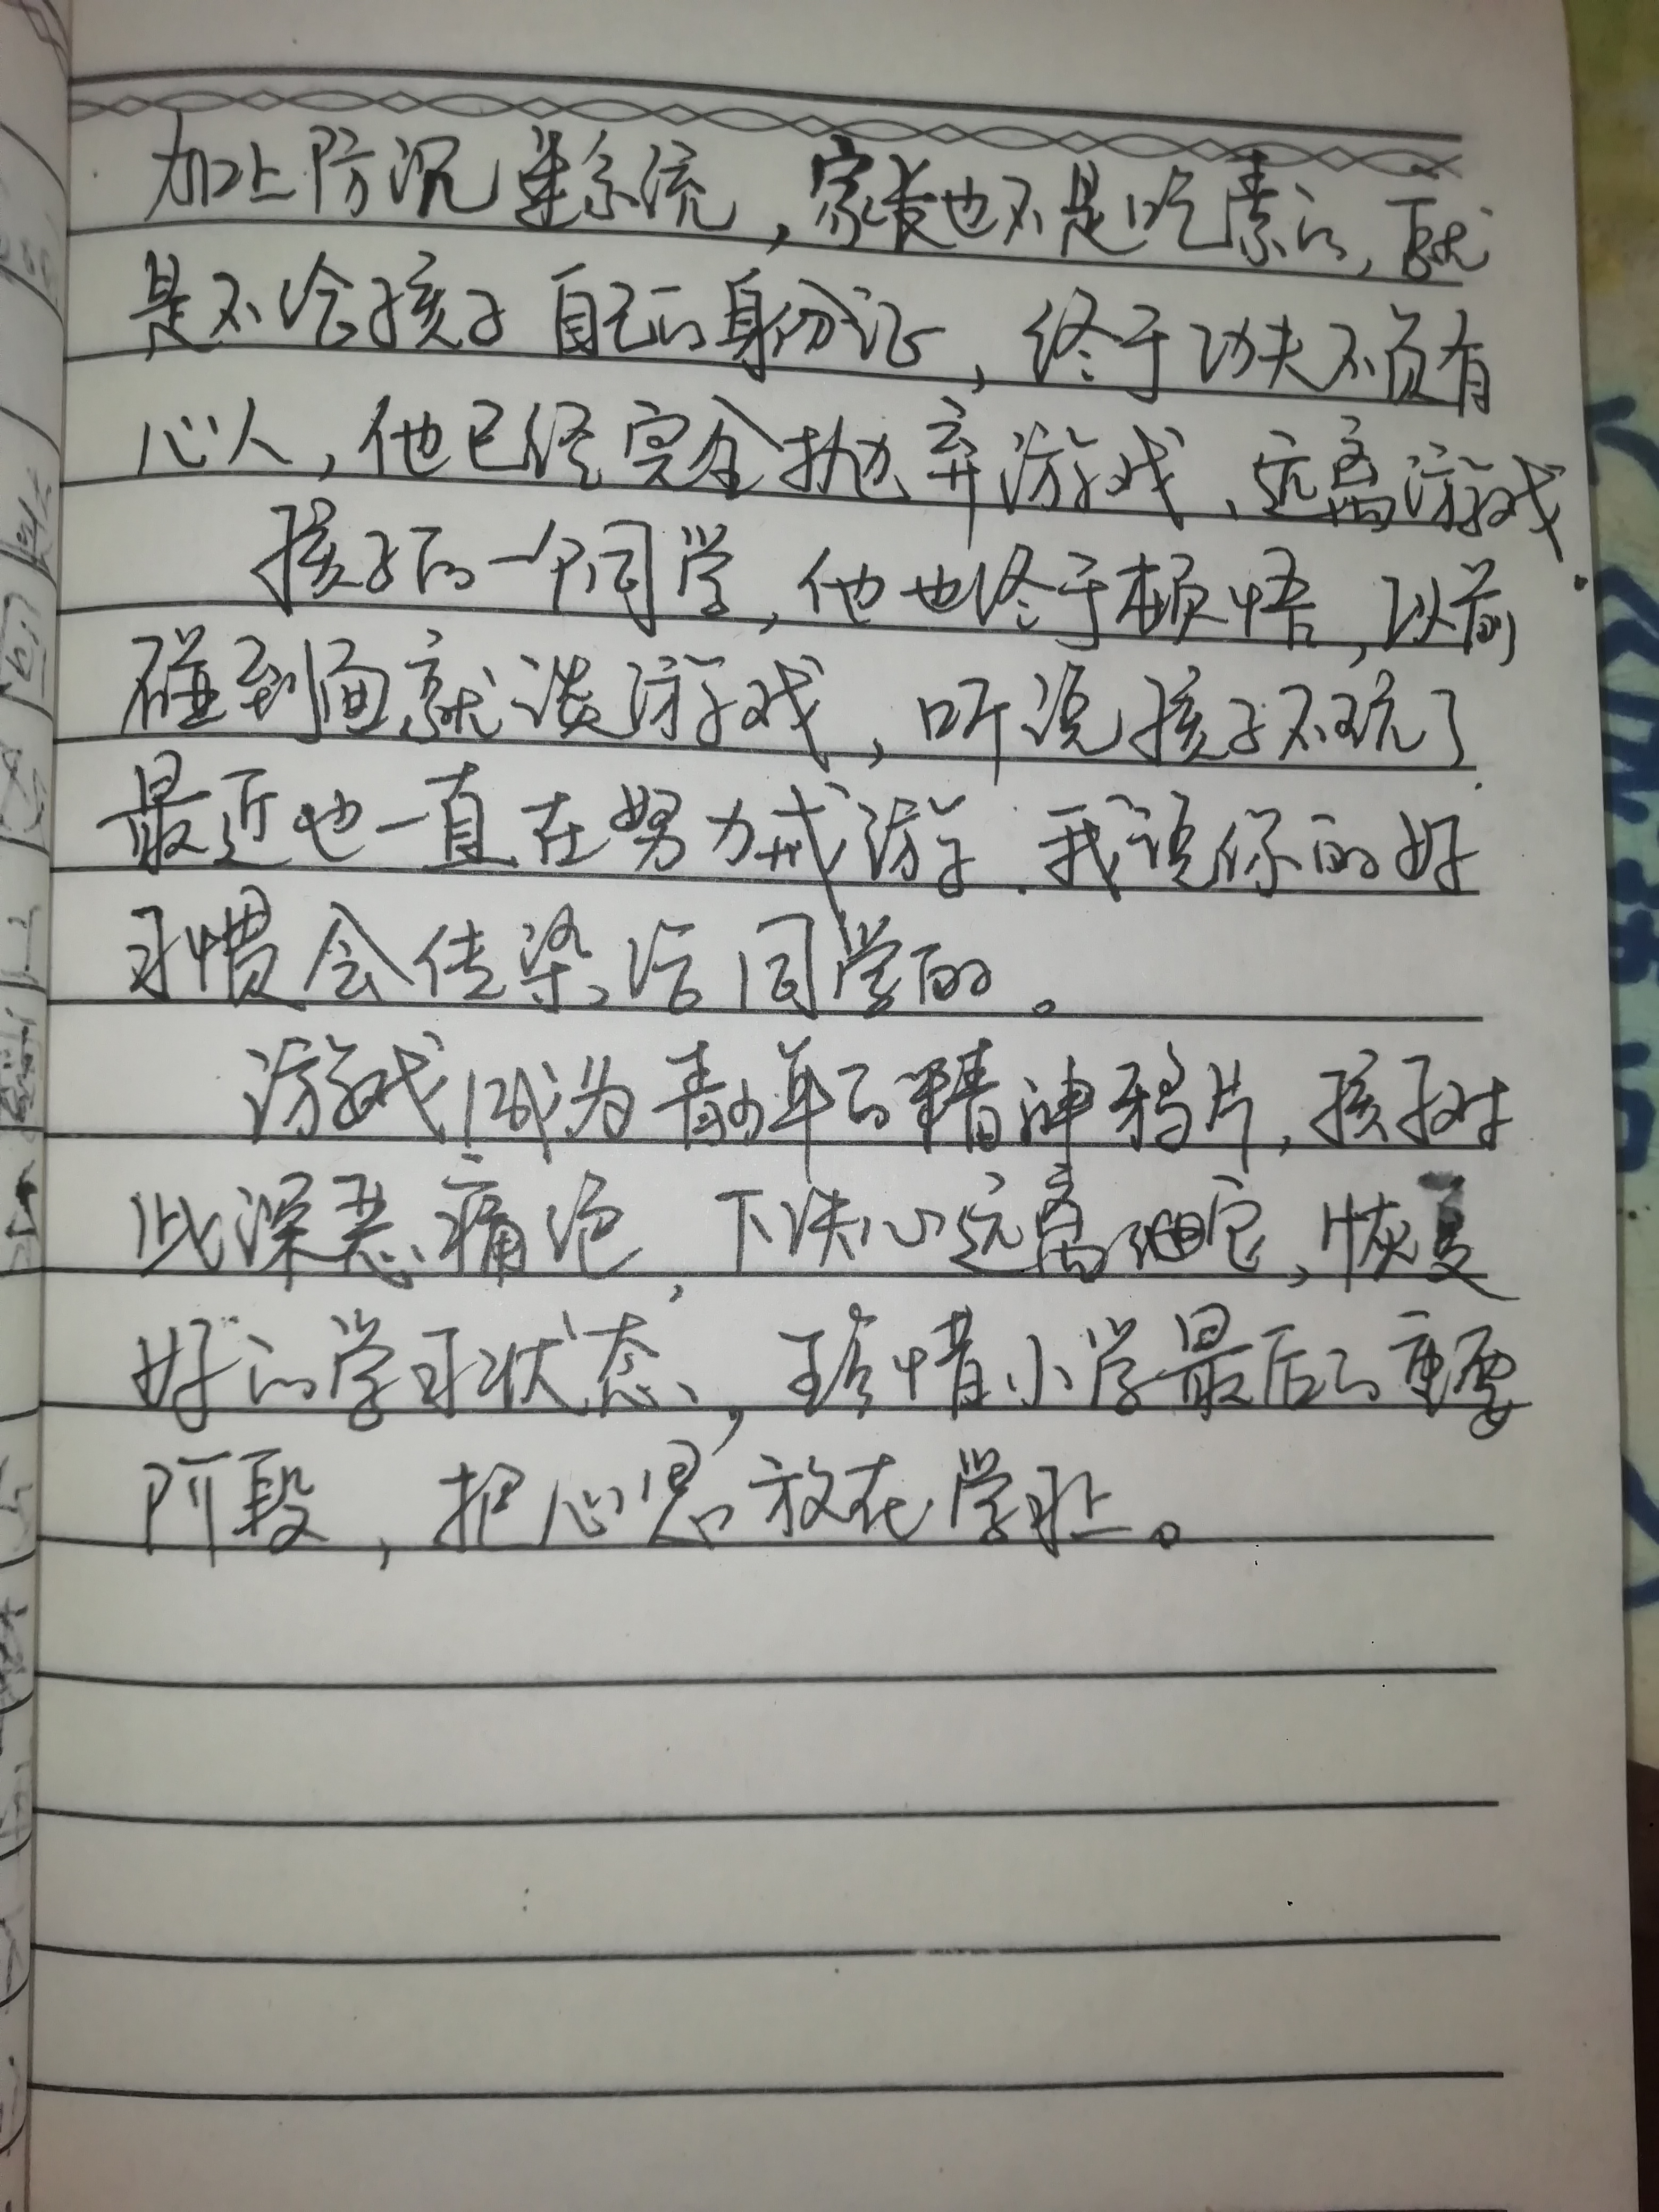 加上防沉迷系统，家长也不是吃素的，就
是不给孩子自己的身份证，终于功夫不负有
心人，他已经完全抛弃游戏、远离游戏.
孩子的一个同学，他也终于顿悟，以前
碰到面就谈游戏，听说孩子不玩了.
最近也一直在努力戒游子.我说你的好
习惯会传染给同学的。
游戏成为青少年的精神鸦片，孩子对
此深恶痛绝，下决心远离它，恢复
好的学习状态，珍惜小学最后的重要
阶段，把心思放在学习上。